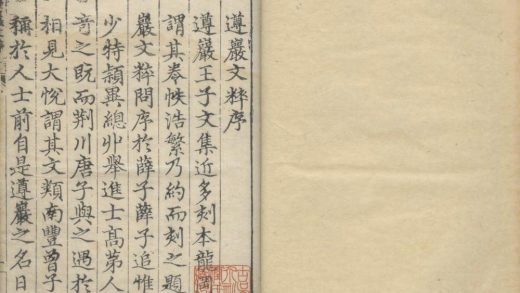 遵巖文粹序
遵巖王子文集近多刻本龍
謂其卷帙浩繁乃約而刻之題
巖文粹問序於薛子薛子追惟
少特頴異總丱舉進士高第人
奇之既而荆川唐子與之遇於
相見大悅謂其文類南豐曾子
稱於人士前自是遵巖之名日